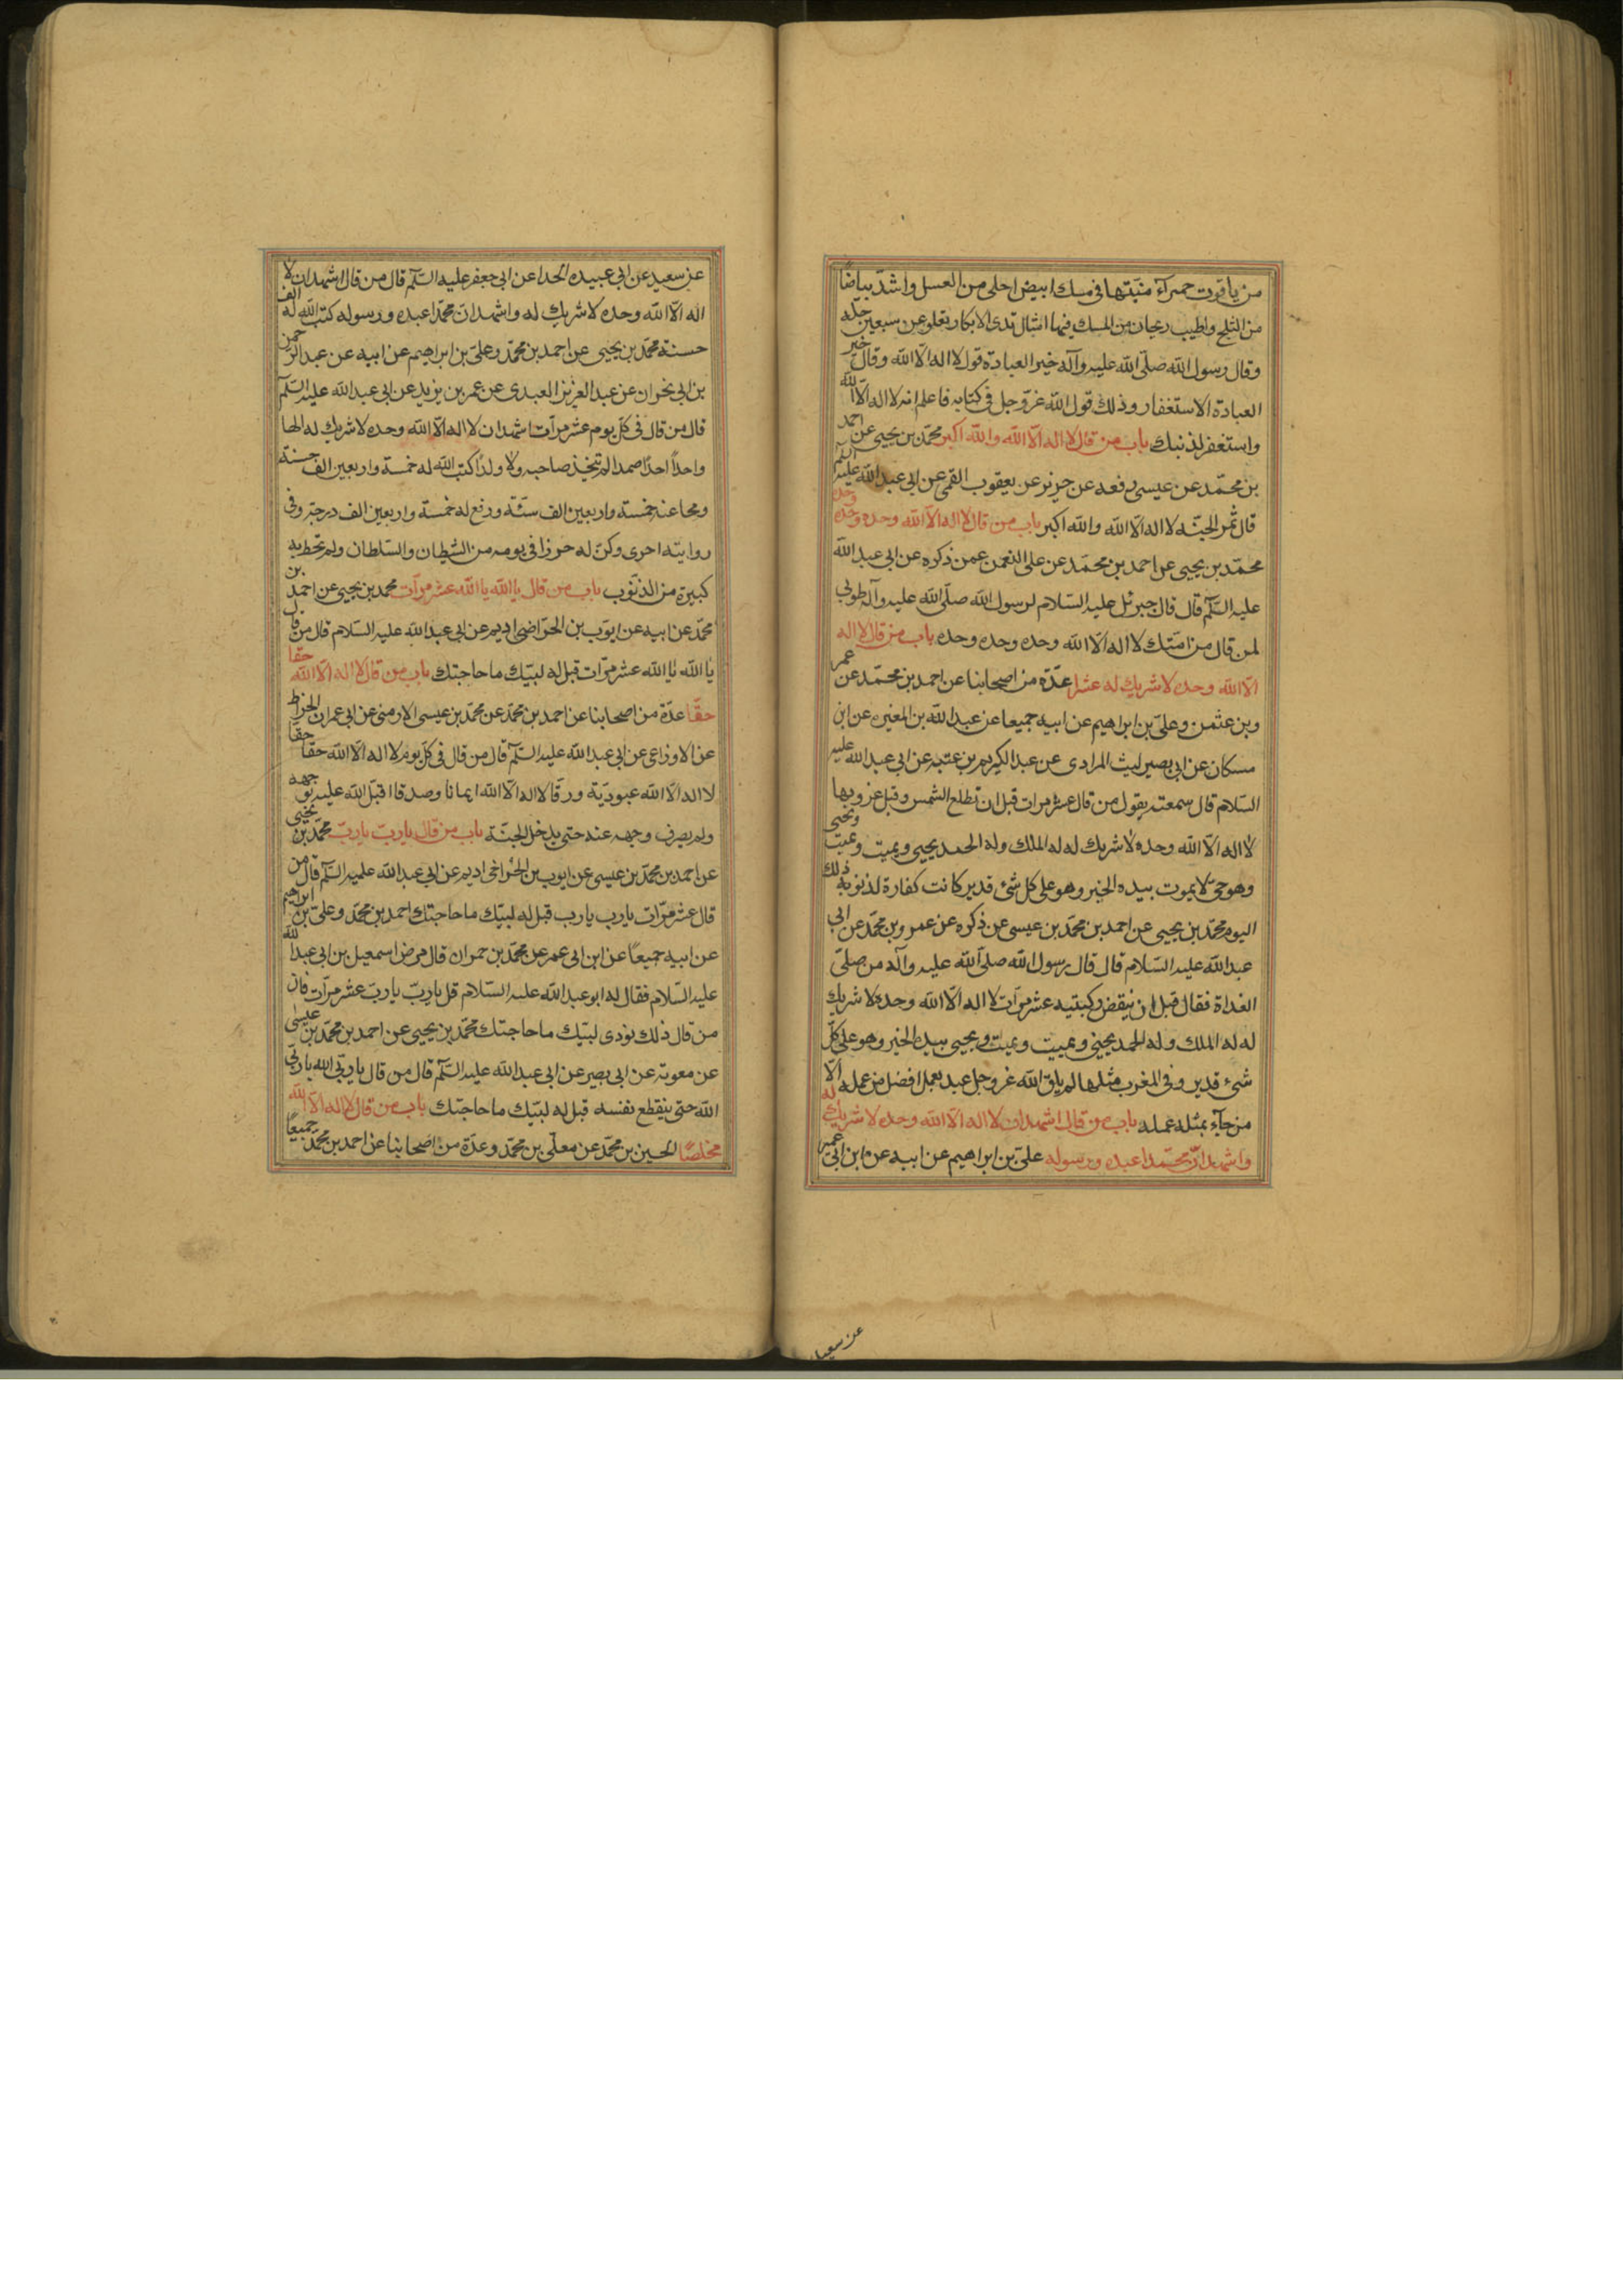 من ياقوت حمرآء منبتها فى مسك ابيض احلى من العسل واشدّ بياضًا
من الثلج واطيب ريحا من المسك فيها امثال ثدى الابكار تعلو عن سبعين حلّه
وقال رسول الله صلّى الله عليه وآله خير العبادة قول لا اله الّا الله وقال خير
العبادة الاستغفار وذلك قول الله عزّ وجل فى كتابه فاعلم انه لا اله الّا الله
واستغفر لذنبك باب من قال لا اله الّا الله والله اكبر محمّد بن يحيى عن احمد
بن محمّد عن عيسى رفعه عن حريز عن يعقوب القمى عن ابى عبد الله عليه السّلم
قال ثمن الجنّه لا اله الّا الله والله اكبر باب من قال لا اله الّا الله وحده وحده وحده
محمّد بن يحيى عن احمد بن محمّد عن على النعمن عمن ذكره عن ابى عبد الله
عليه السّلم قال قال جبرئل عليه السّلام لرسول الله صلّى الله عليه وآله طوبى
لمن قال من امّتك لا اله الّا الله وحده وحده وحده باب من قال لا اله
الّا الله وحده لا شريك له عشرا عدّة من اصحابنا عن احمد بن محمّد عن عمر
وبن عثمن وعلىّ بن ابراهيم عن ابيه جميعا عن عبد الله بن المغيره عن ابن
مسكان عن ابى بصير ليث المرادى عن عبد الكريم بن عتبه عن ابى عبد الله عليه
السّلام قال سمعته يقول من قال عشر مرات قبل ان تطلع الشمس وقبل غروبها
لا اله الّا الله وحده لا شريك له له الملك وله الحمد يحيى ويميت ويميت ويحيى
وهو حىّ لا يموت بيده الخير وهو على كل شئ قدير كانت كفارة لذنوبه ذلك
اليوم محمّد بن يحيى عن احمد بن محمّد بن عيسى عن ذكره عن عمر وبن محمّد عن ابى
عبد الله عليه السّلام قال قال رسول الله صلّى الله عليه وآله من صلّى
الغداة فقال قبل ان ينقض ركبتيه عشر مرّات لا اله الّا الله وحده لا شريك
له له الملك وله الحمد يحيى ويميت ويميت ويحيى بيده الخير وهو على كلّ
شئ قدير وفى المغرب مثلها لم يلق الله عزوجل عبد بعمل افضل من عمله الّا
من جآء بمثله عمله باب من قال اشهد ان لا اله الّا الله وحده لا شريك له
واشهد انّ محمّدا عبده ورسوله علىّ بن ابراهيم عن ابيه عن ابن ابى عمير
عن سعيد
عن سعيد عن ابى عبيده الحدا عن ابى جعفر عليه السّلم قال من قال اشهد ان لا
اله الّا الله وحده لا شريك له واشهد انّ محمّدا عبده ورسوله كتب الله له الف
حسنة محمّد بن يحيى عن احمد بن محمّد وعلىّ بن ابراهيم عن ابيه عن عبد الرحمن
بن ابى نجران عن عبد العزيز العبدى عن عمر بن يزيد عن ابى عبد الله عليه السّلم
قال من قال فى كلّ يوم عشر مرّات اشهد ان لا اله الّا الله وحده لا شريك له الها
واحداً احدًا صمدا لم يتّخذ صاحبه ولا ولدًا كتب الله له خمسة واربعين الف حسنة
ومحا عنه خمسة واربعين الف سيّئة ورفع له خمسة واربعين الف درجة وفى
روايته اخرى وكنّ له حرزا فى يومه من الشيطان والسّلطان ولم تحط به
كبيرة من الذنوب باب من قال يا الله يا الله عشر مرآت محمد بن يحيى عن احمد بن
محمّد عن ابيه عن ايوّب بن الحرّ اخى اديم عن ابى عبد الله عليه السّلام قال من قال
يا الله يا الله عشر مرّات قيل له لبيّك ما حاجتك باب من قال لا اله الّا الله حقّا
حقّا عدّة من اصحابنا عن احمد بن محمّد عن محمّد بن عيسى الارمنى عن ابى عمران الخراط
عن الاوزاعى عن ابى عبد الله عليه السّلم قال من قال فى كلّ يوم لا اله الّا الله حقّا حقّا
لا اله الّا الله عبوديّة ورقّا لا اله الّا الله ايمانا وصدقا اقبل الله عليه بوجهه
ولم يصرف وجهه عنه حتى يدخل الجنّة باب من قال يا ربّ يا ربّ محمّد بن يحيى
عن احمد بن محمّد بن عيسى عن ايوب بن الحرّ اخى اديم عن ابى عبد الله عليه السّلم قال من
قال عشر مرّات يا رب يا رب قيل له لبيّك ما حاجتك احمد بن محمّد وعلىّ بن ابراهيم
عن ابيه جميعًا عن ابن ابى عمر عن محمّد بن حمران قال مرض اسمعيل بن ابى عبد الله
عليه السّلام فقال له ابو عبد الله عليه السّلام قل يا ربّ يا ربّ عشر مرآت فان
من قال ذلك نودى لبيّك ما حاجتك محمّد بن يحيى عن احمد بن محمّد بن عيسى
عن معوية عن ابى بصير عن ابى عبد الله عليه السّلم قال من قال يا ربّى الله يا ربّى
الله حتى ينقطع نفسه قيل له لبيّك ما حاجتك باب من قال لا اله الّا الله
مخلصًا الحسين بن محمّد عن معلّى بن محمّد وعدّة من اصحابنا عن احمد بن محمّد جميعًا